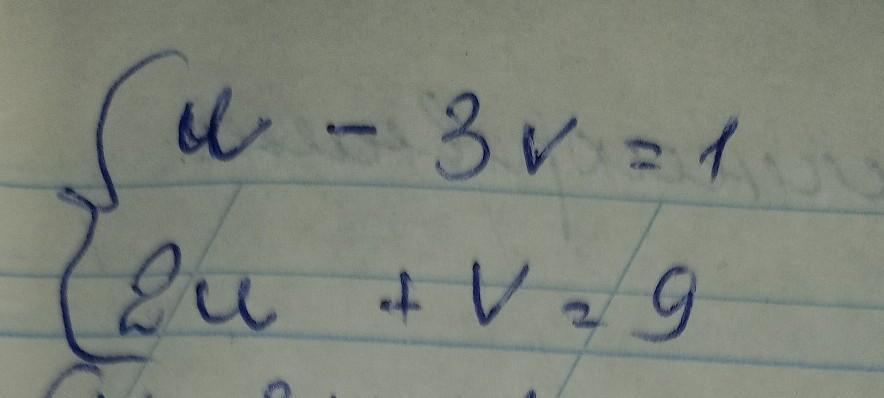 u - 3v = 1
2u + v = 9